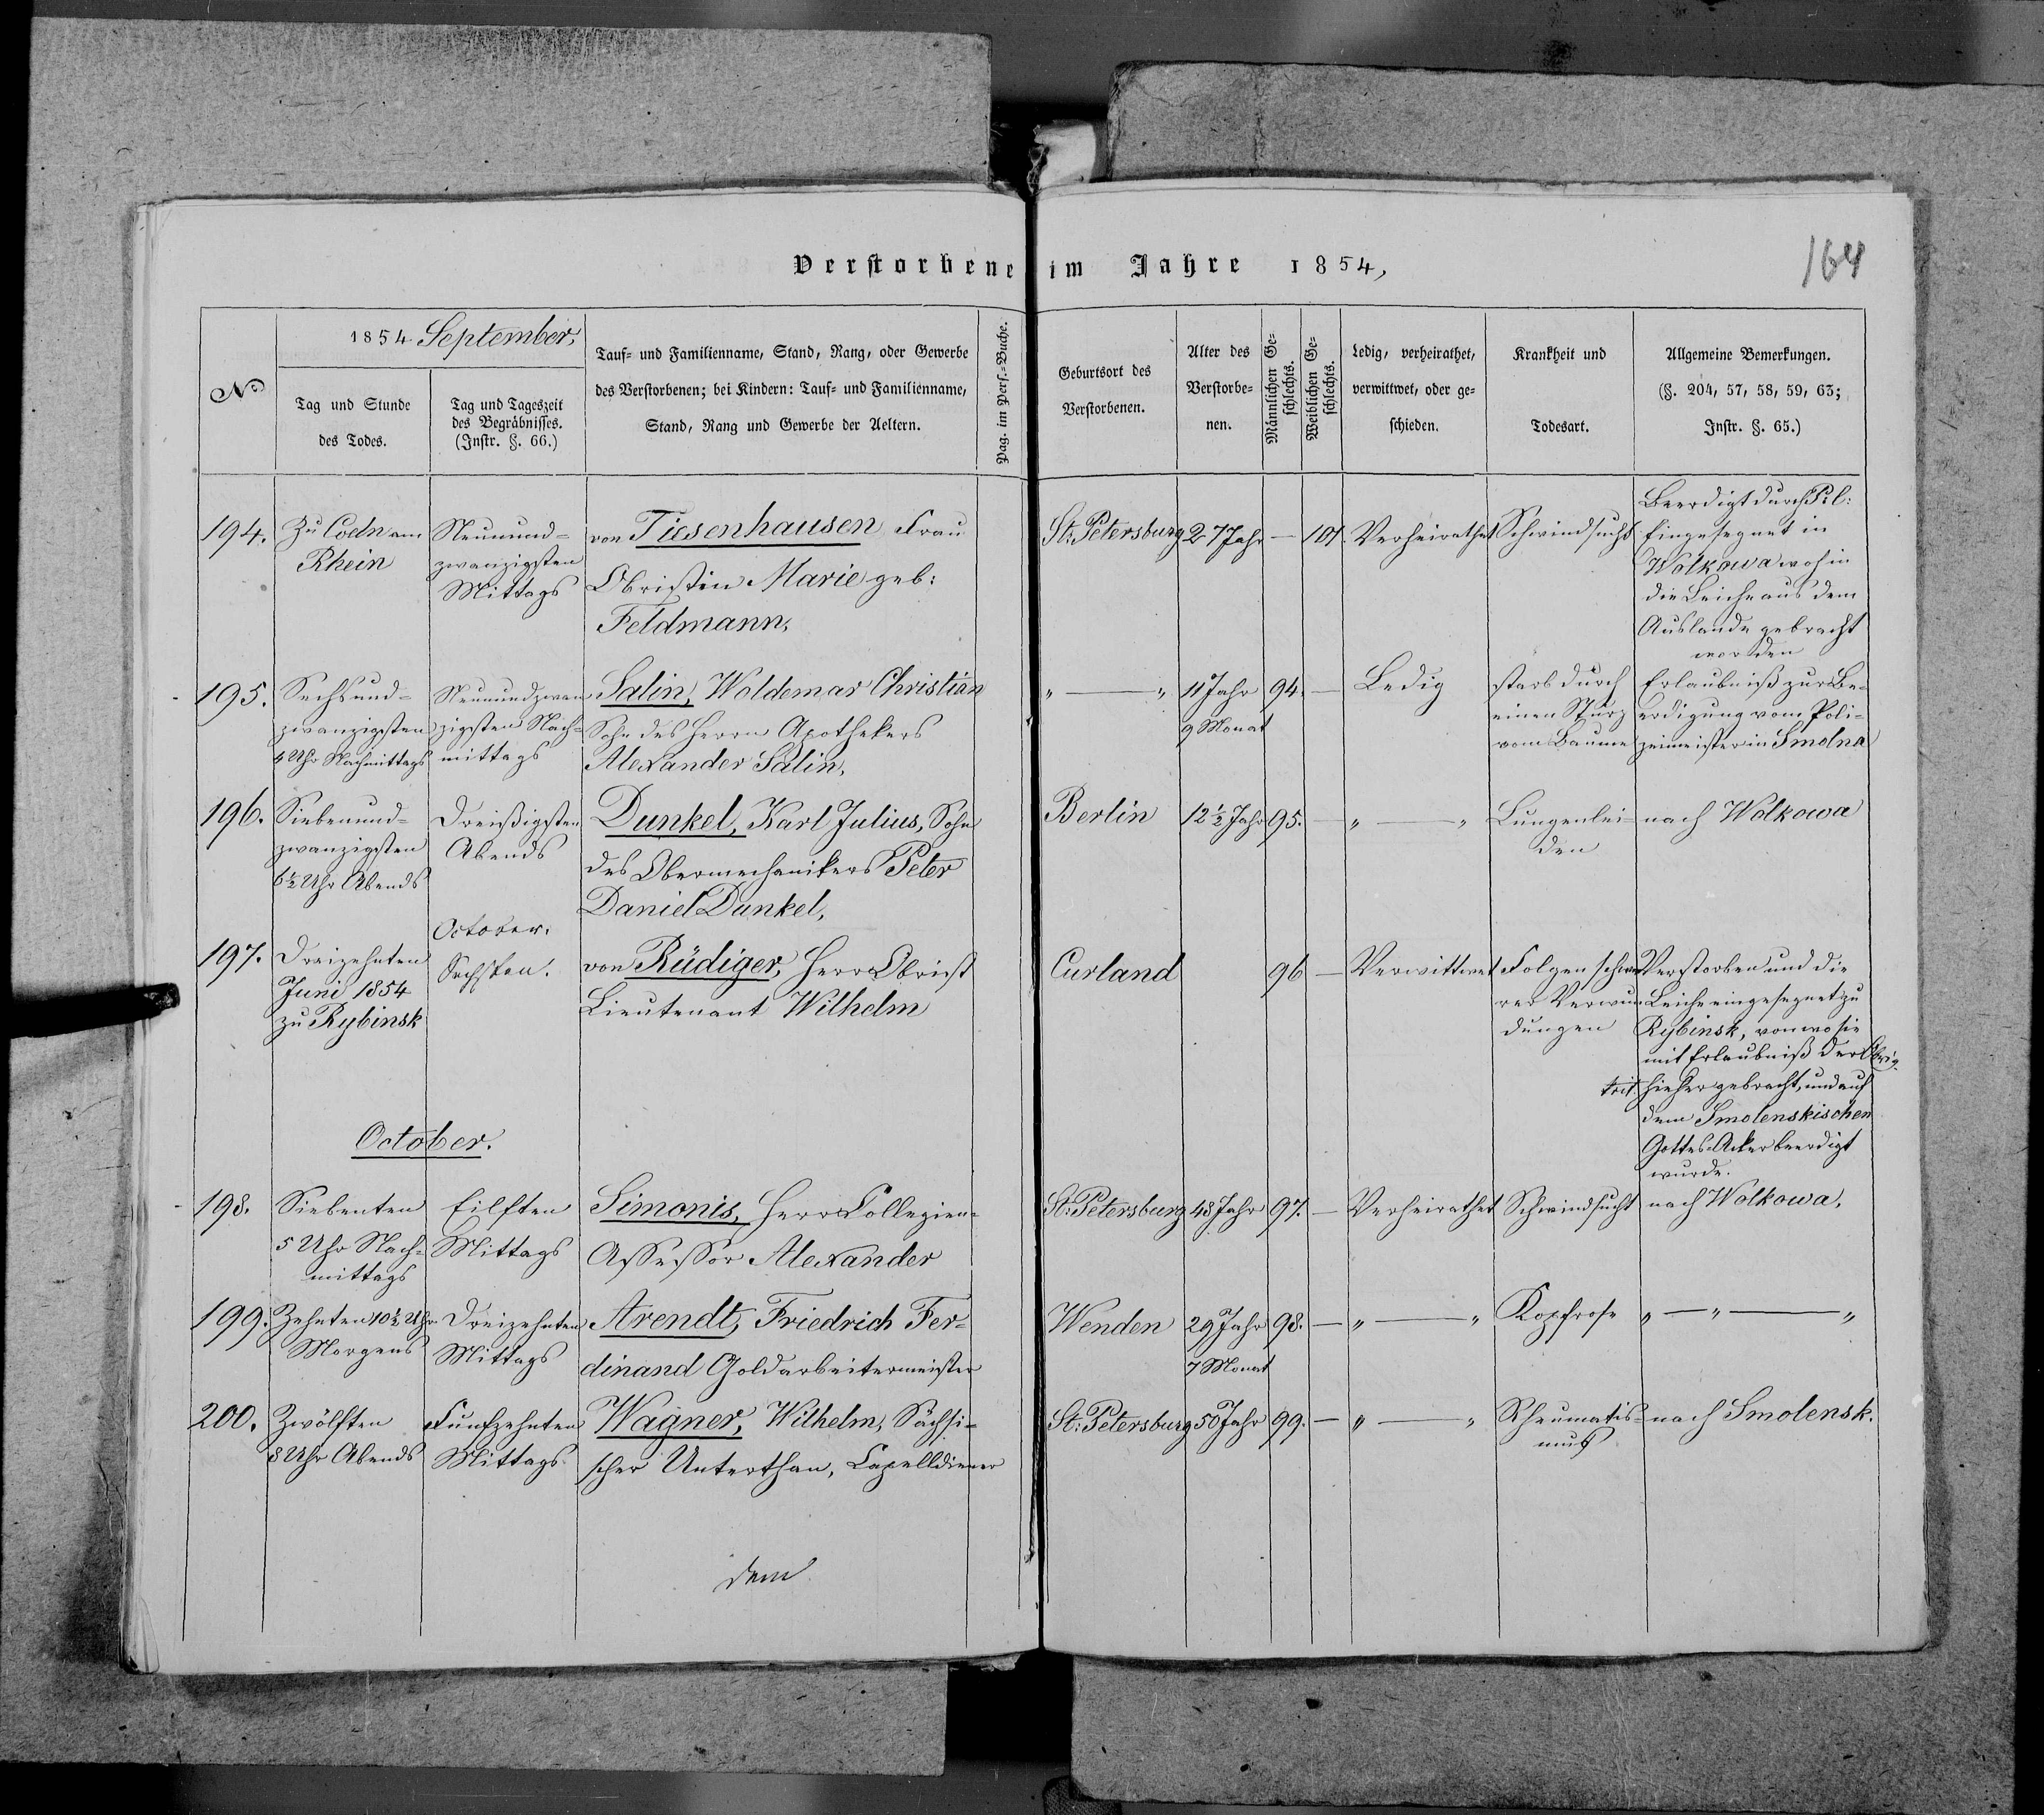 Verstorbene im Jahre 1854,
164
No
1854 September,
Tag und Stunde
des Todes.
Tag und Tageszeit
des Begräbnisses.
(Instr. §. 66.)
Tauf= und Familienname, Stand, Rang, oder Gewerbe
des Verstorbenen; bei Kindern: Tauf= und Familienname,
Stand, Rang und Gewerbe der Aeltern.
Pag. im Pers.=Buche.
Geburtsort des
Verstorbenen.
Alter des
Verstorbe=
nen.
Männlichen Ge=
schlechts.
Weiblichen Ge=
schlechts.
Ledig, verheirathet,
verwittwet, oder ge=
schieden.
Krankheit und
Todesart.
Allgemeine Bemerkungen.
(§. 204, 57, 58, 59, 63;
Instr. §. 65.)
194.
Zu Coeln am
Rhein
Neunund=
zwanzigsten
Mittags
von Tiesenhausen Frau
Obristin Marie geb:
Feldmann,
St: Petersburg
27 Jahr
—
101.
Verheirathet
Schwindsucht
Beerdigt durch
Eingesegnet in
Wolkowa wohin
die Leiche aus dem
Auslande gebracht
worden
195.
Sechsund=
zwanzigsten
4 Uhr Nachmittags
Neunundzwan
zigsten Nach=
mittags
Salin, Woldemar Christian
Sohn des Herrn Apothekers
Alexander Salin,
„ — „
11 Jahr
9 Monat
94.
—
Ledig
starb durch
einen Sturz
vom Baume
Erlaubniß zur Be=
erdigung vom Poli=
zeimeister in Smolna
196.
Siebenund=
zwanzigsten
6½ Uhr Abends
Dreißigsten
Abends
Dunkel, Karl Julius, Sohn
des Obermechanikers Peter
Daniel Dunkel,
Berlin
12½ Jahr
95.
—
„ — „
Lungenlei=
den
nach Wolkowa
197.
Dreizehnten
Juni 1854
zu Rybinsk
October.
Sechsten.
von Rüdiger, Herr Obrist
Lieutenant Wilhelm
Curland
96
—
Verwittwet
Folgen schwe
rer Verwun
dungen
Verstorben und die
Leiche eingesegnet zu
Rybinsk, von wo sie
mit Erlaubniß der Obrig=
keit hieher gebracht, und auf
dem Smolenskischen
Gottes=Acker beerdigt
wurde.
October.
198.
Siebenten
5 Uhr Nach=
mittags
Eilften
Mittags
Simonis, Herr Collegien=
Assessor Alexander
St: Petersburg
48 Jahr
97.
—
Verheirathet
Schwindsucht
nach Wolkowa,
199.
Zehnten 10½ Uhr
Morgens
Dreizehnten
Mittags
Arendt, Friedrich Fer=
dinand Goldarbeitermeister
Wenden
29 Jahr
7 Monat
98.
—
„ — „
Kopfrose
„ — „ — „
200.
Zwölften
8 Uhr Abends
Funfzehnten
Mittags
Wagner, Wilhelm, Sächsi=
scher Unterthan, Capelldiener
St: Petersburg
50 Jahr
99.
—
„ — „
Rheumatis=
mus
nach Smolensk.
dem